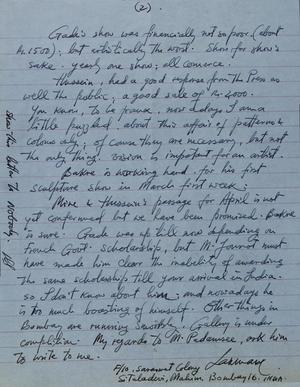 (2).
Gade's show was financially not so poor (about
Rs.1500); but artistically the worst. Show for show's
sake. yearly one show; all commerce.
Hussein, had a good response from the Press as
well the public, a good sale of Rs.4000.
You know, to be frank, now a days I am a
little puzzled about this affair of patterns &
colours only; of cause they are necessary, but not
the only thing. vision is important for an artist.
Bakre is working hard for his first
Sculpture show in March first week;
Mine & Hussein's passage for April is not
yet confirmed but we have been promised. Bakre
is sure. Gade was up till now depending on
French Govt. Scholarship, but M. must
have made him clear the inability of awarding
the same scholarship till your arrival in India.
so I don't know about him; and nowadays he
is too much boasting of himself. Other things in
Bombay are running smooth. Gallery is under
completion. My regards to M. Padamsee, ask him
to write to me.
Laxman
P/10, Saraswat Colony
Sitaladevi, Mahim, Bombay 16. INDIA.
show this letter to Nobody.